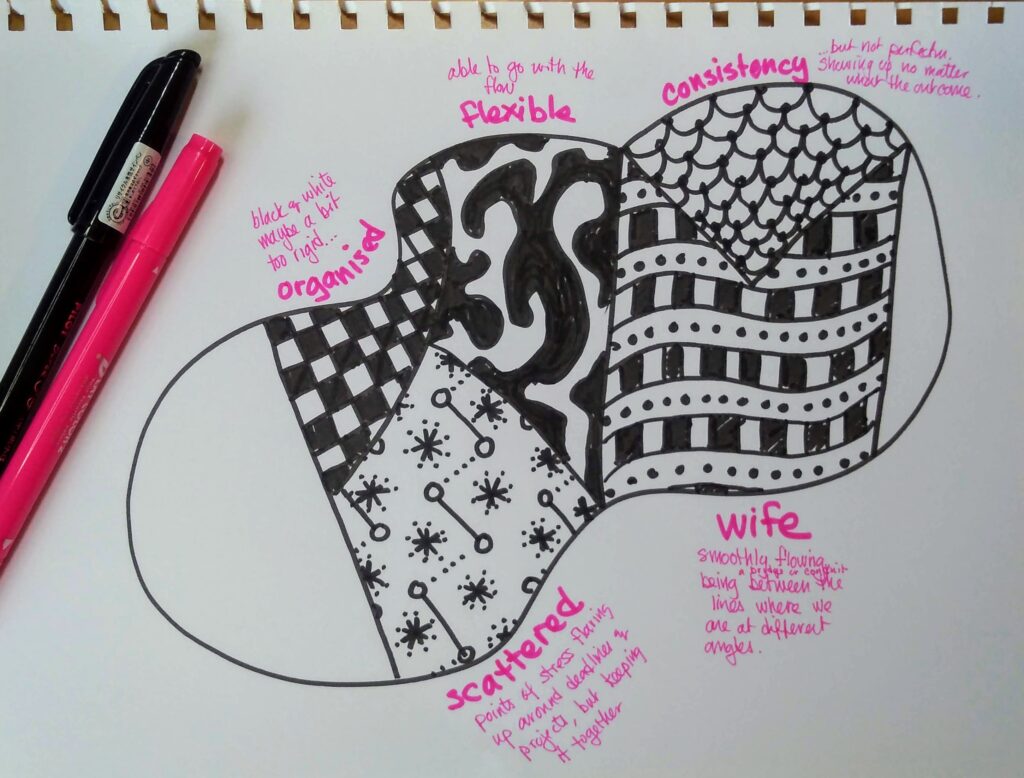 able to go with the
flow
flexible
consistency
...but not perfection.
showing up no matter
what the outcome.
black & white
maybe a bit
too rigid...
organised
wife
smoothly flowing,
a bridge or conduit
being between the
lines where we
are at different
angles.
scattered
points of stress flaring
up around deadlines &
projects, but keeping
it together